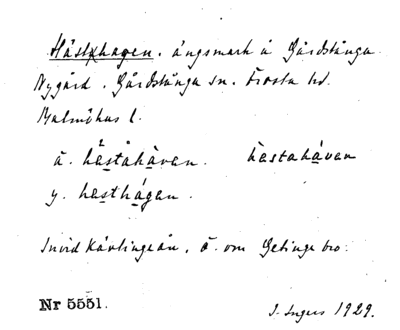 Hästhagen. ängsmark å Gårdstånga
Nygård. Gårdstånga sn. Frosta hd.
Malmöhus l.
ä. hästahåvan. hästahåvan
y. hästhågen.
Invid Kävlingeån, ö. om Getinge bro.
Nr 5551.
I. Ingers 1929.